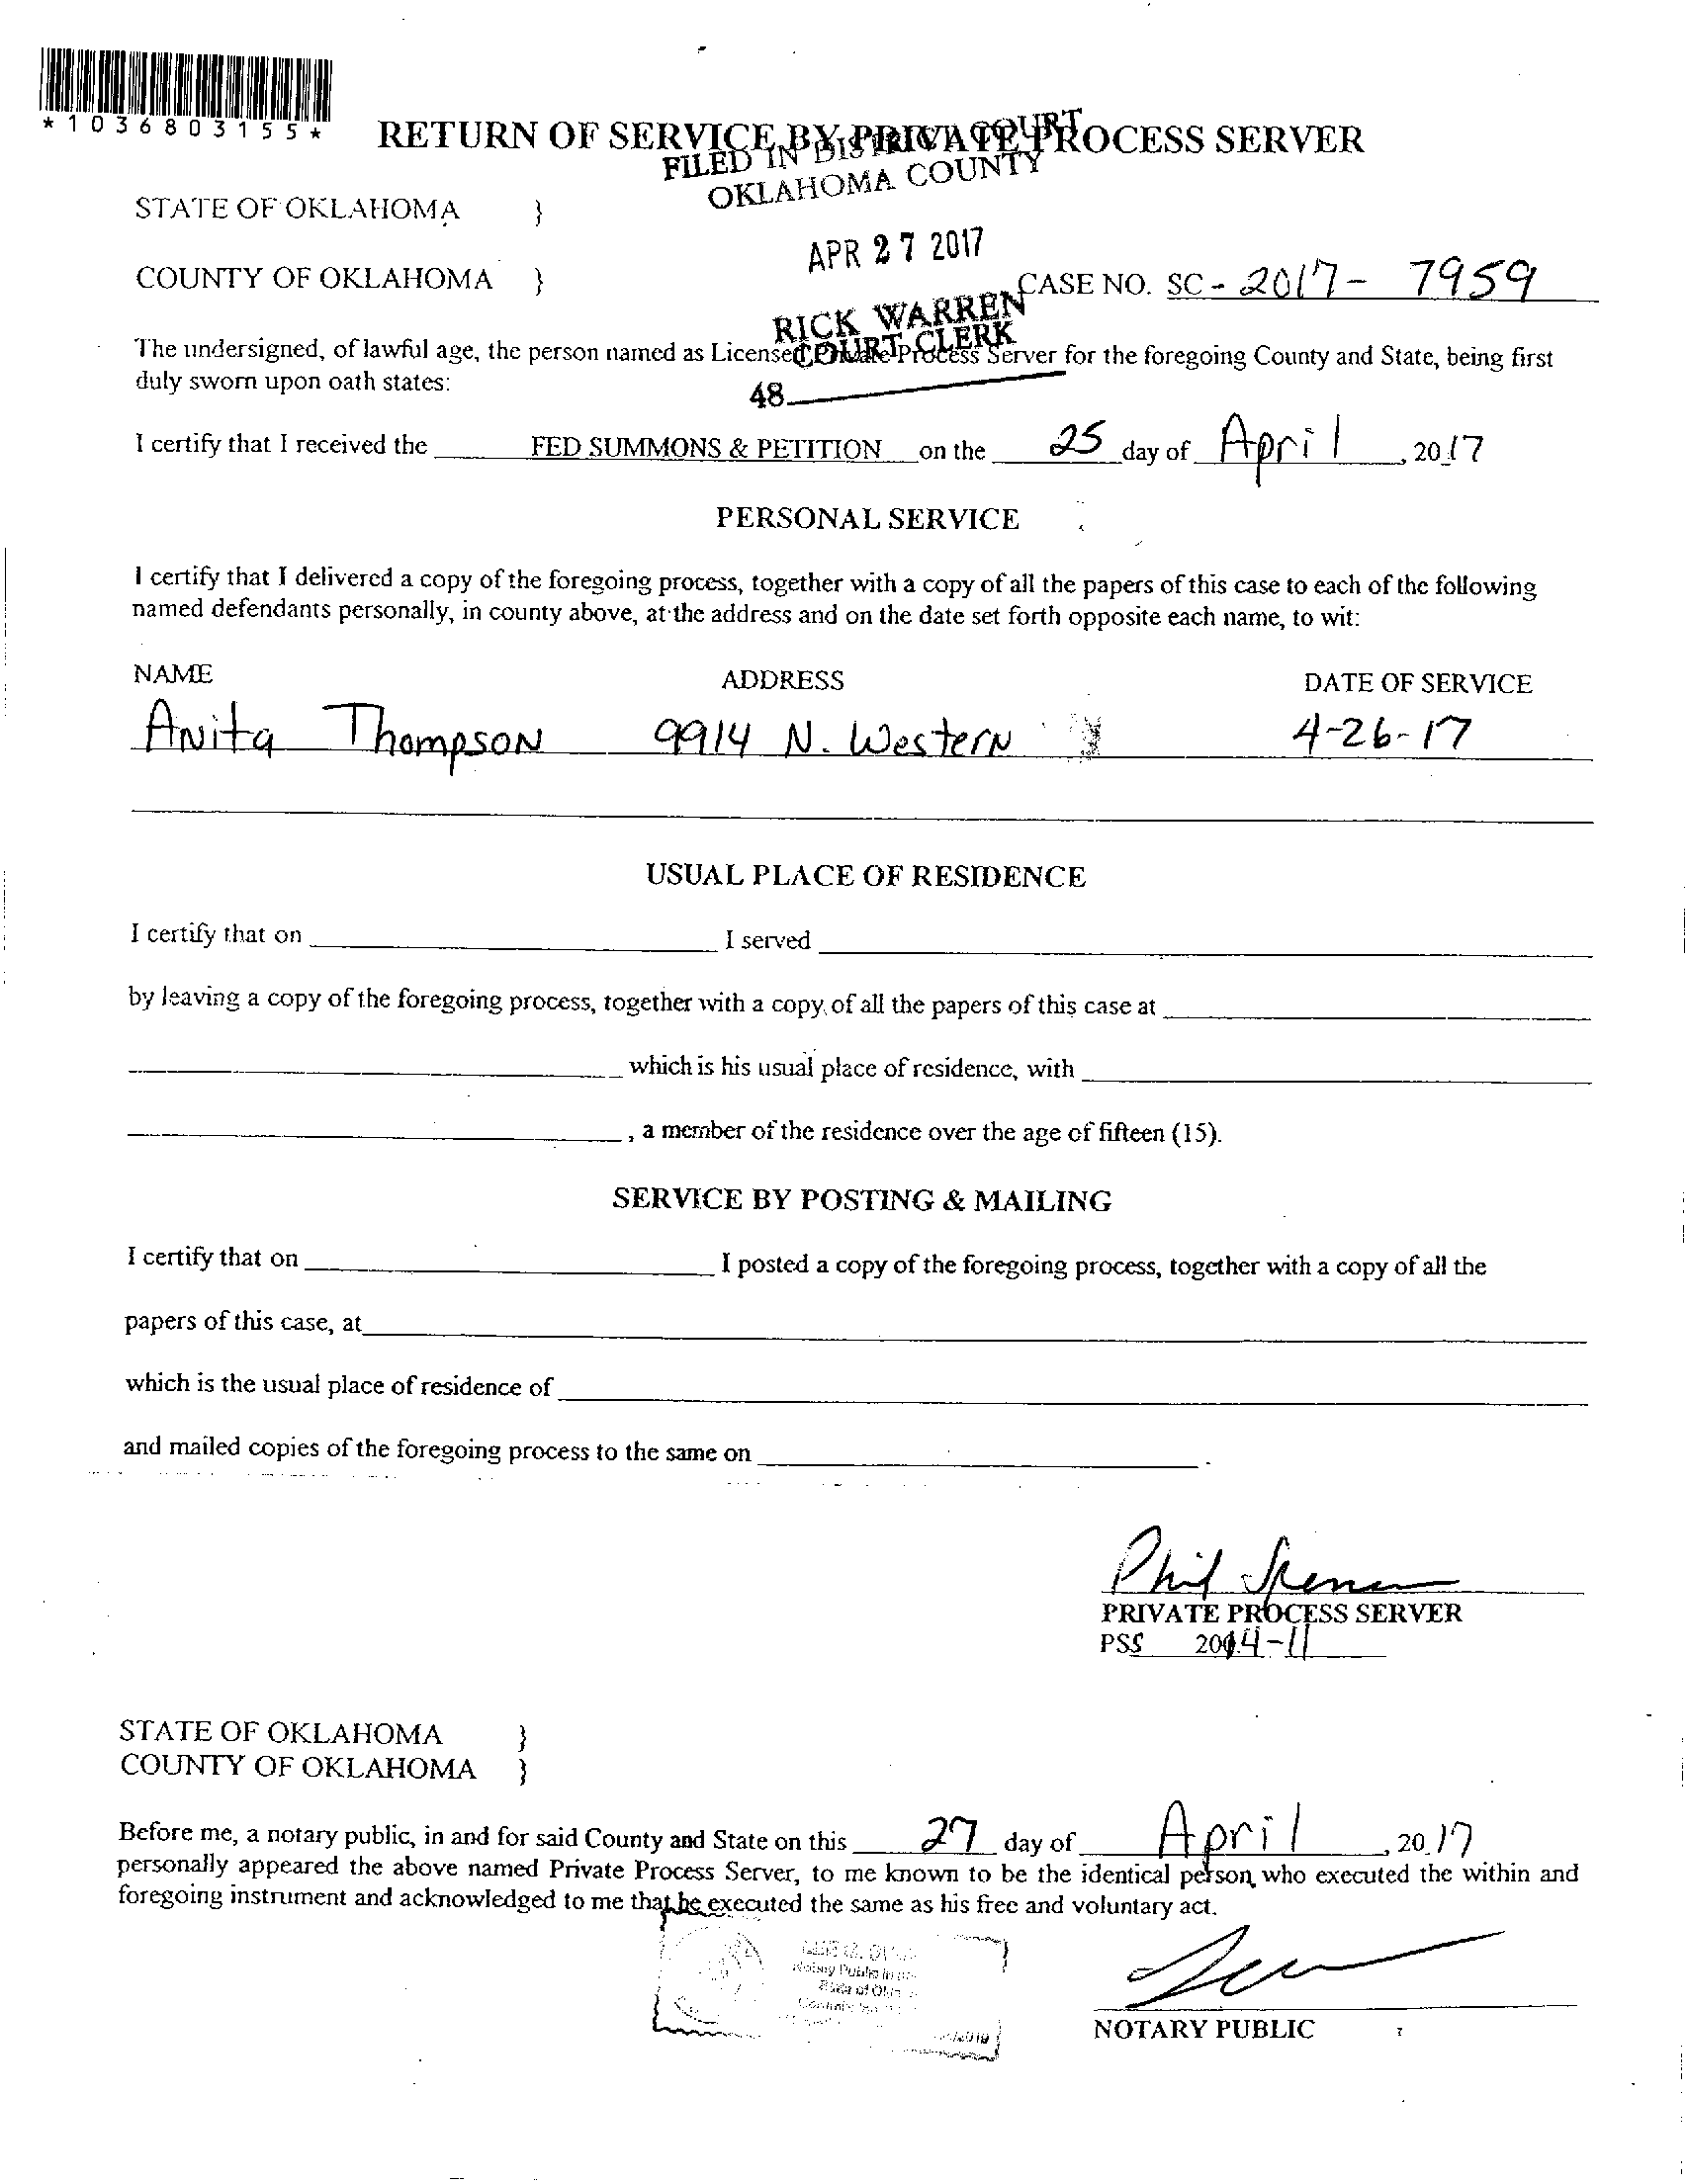 *1036803155*
RETURN OF SERVICE BY PRIVATE PROCESS SERVER
FILED IN DISTRICT COURT
OKLAHOMA COUNTY
STATE OF OKLAHOMA }
APR 27 2017
COUNTY OF OKLAHOMA }
CASE NO. SC - 2017- 7959
RICK WARREN
COURT CLERK
The undersigned, of lawful age, the person named as Licensed Private Process Server for the foregoing County and State, being first
duly sworn upon oath states:
48
I certify that I received the FED SUMMONS & PETITION on the 25 day of April, 2017
PERSONAL SERVICE
I certify that I delivered a copy of the foregoing process, together with a copy of all the papers of this case to each of the following
named defendants personally, in county above, at the address and on the date set forth opposite each name, to wit:
NAME ADDRESS DATE OF SERVICE
Anita Thompson 9914 N. Western 4-26-17
USUAL PLACE OF RESIDENCE
I certify that on I served
by leaving a copy of the foregoing process, together with a copy of all the papers of this case at
which is his usual place of residence, with
, a member of the residence over the age of fifteen (15).
SERVICE BY POSTING & MAILING
I certify that on I posted a copy of the foregoing process, together with a copy of all the
papers of this case, at
which is the usual place of residence of
and mailed copies of the foregoing process to the same on .
Phil
PRIVATE PROCESS SERVER
PSS 2014-11
STATE OF OKLAHOMA }
COUNTY OF OKLAHOMA }
Before me, a notary public, in and for said County and State on this 27 day of April, 2017
personally appeared the above named Private Process Server, to me known to be the identical person who executed the within and
foregoing instrument and acknowledged to me that he executed the same as his free and voluntary act.
Notary Public
State of
NOTARY PUBLIC